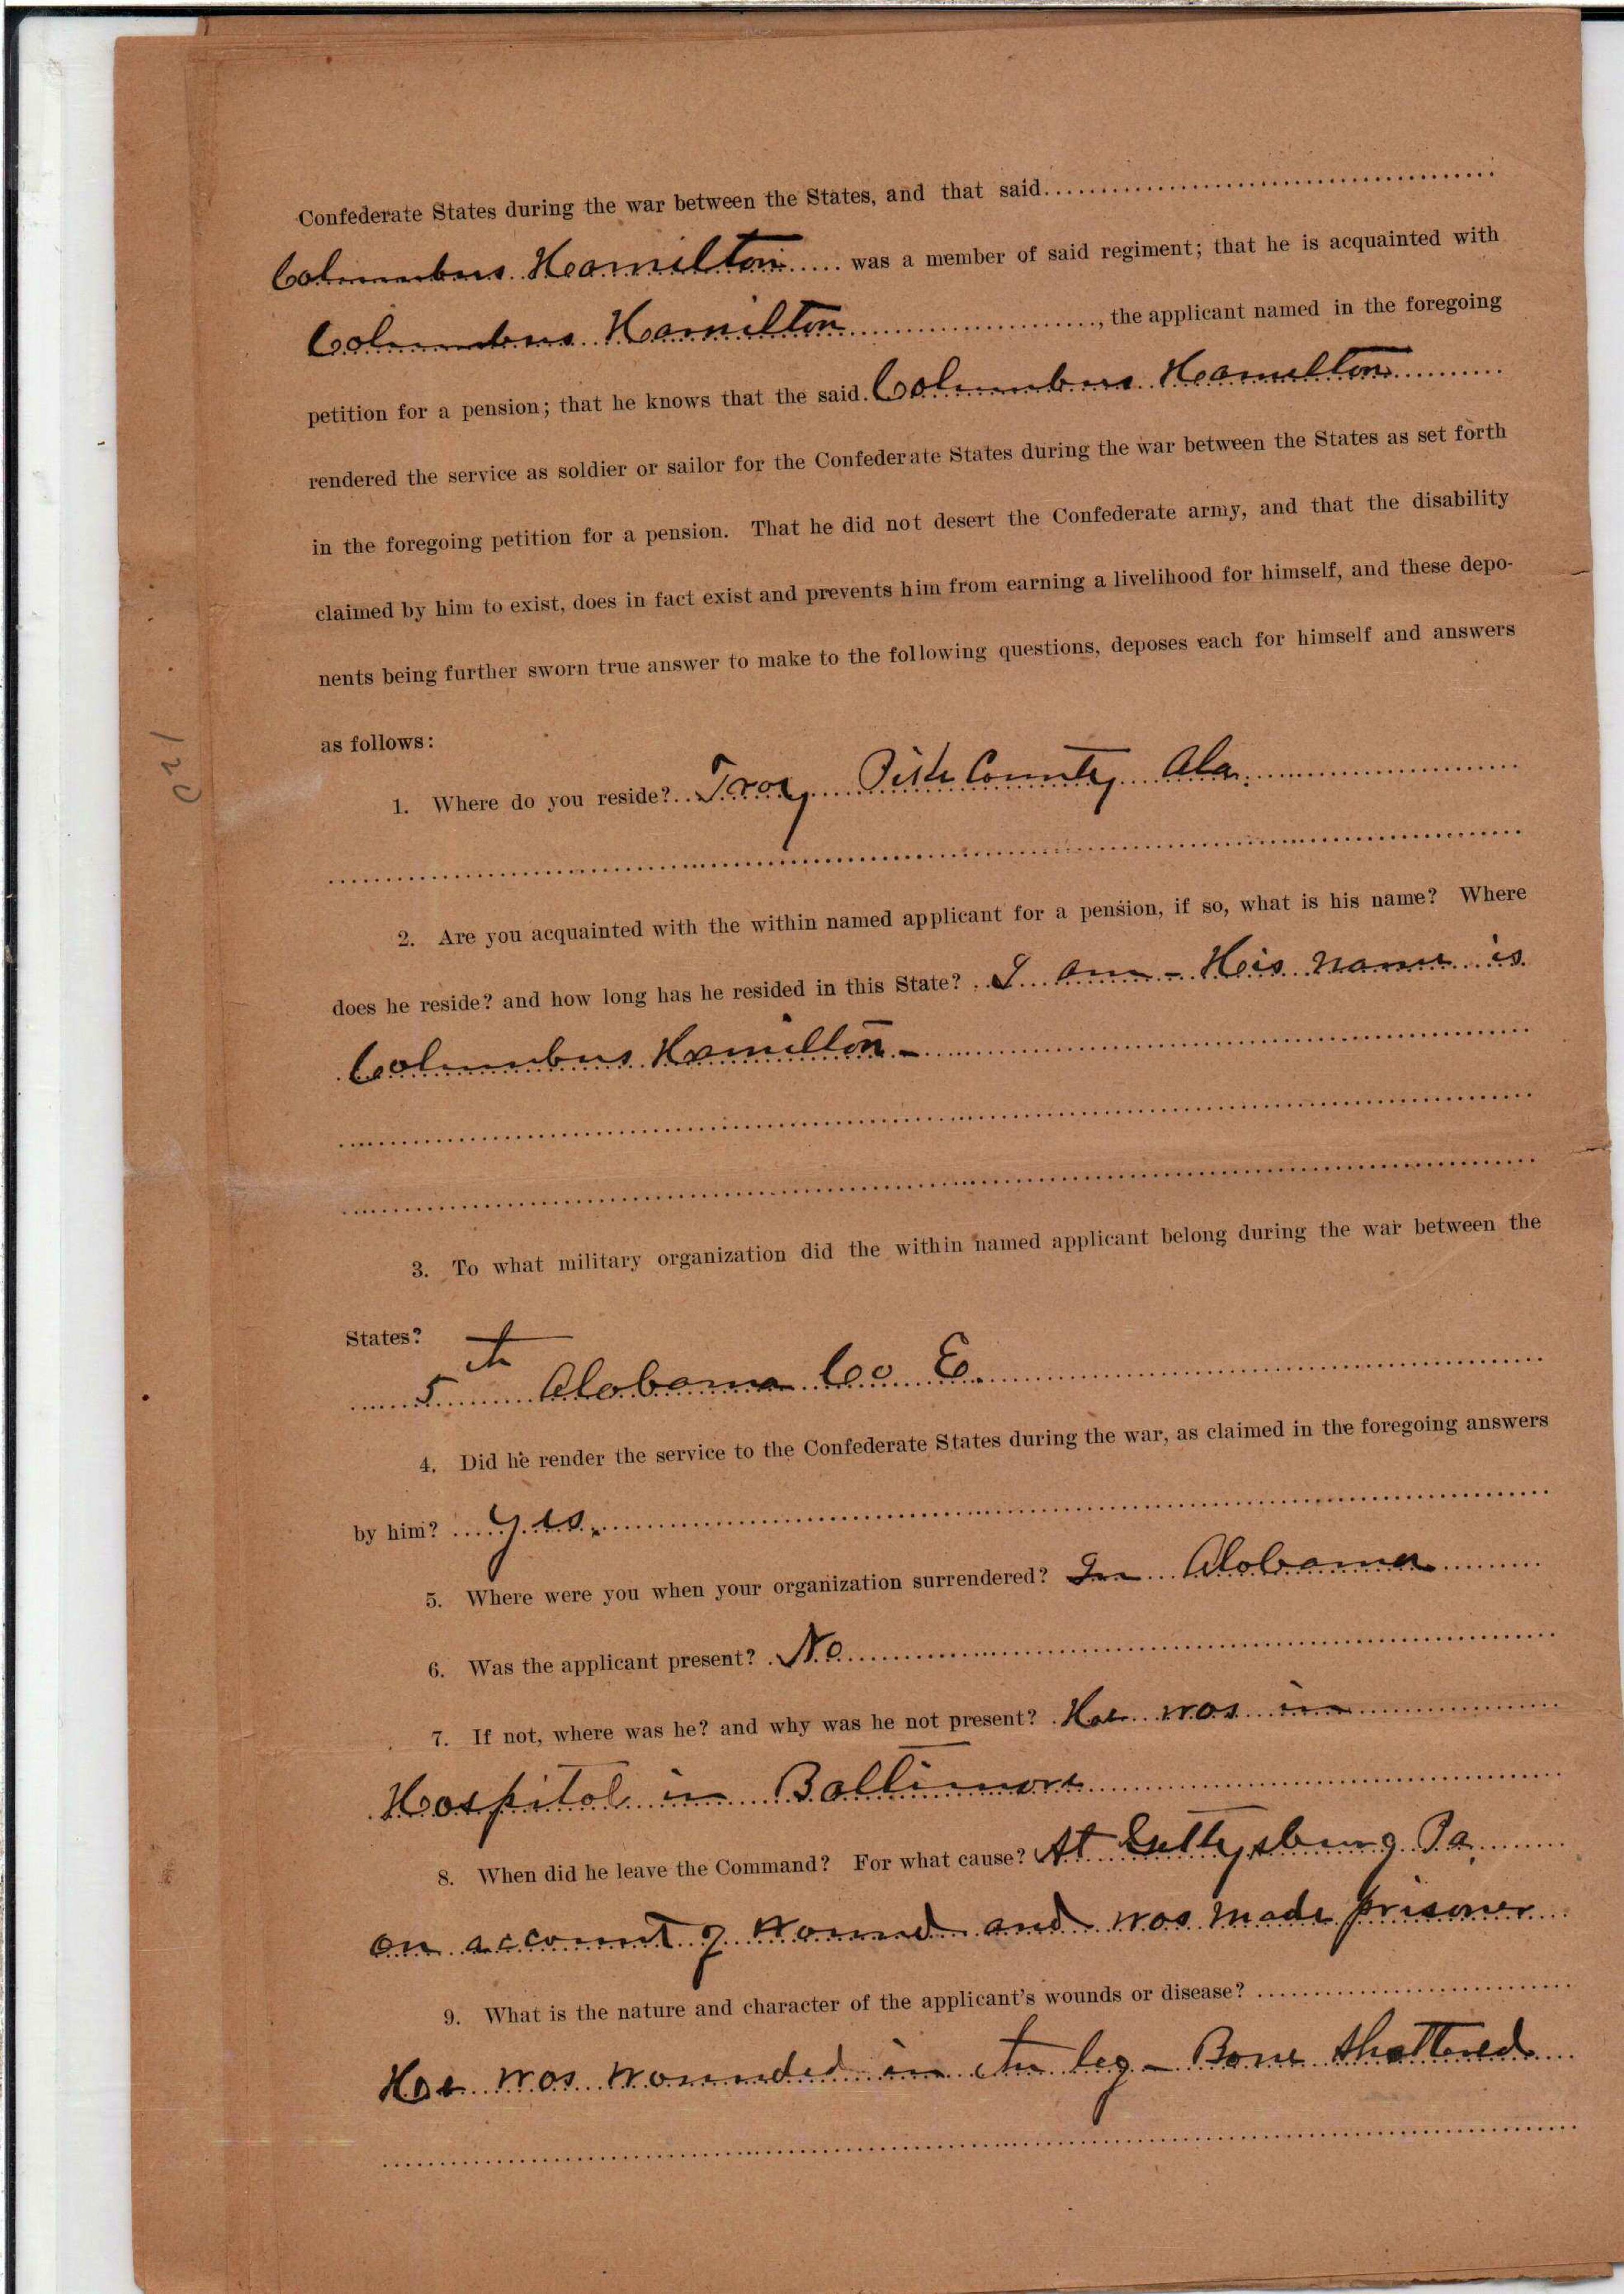 Confederate States during the war between the States, and that said
Columbus Hamilton was a member of said regiment; that he is acquainted with
Columbus Hamilton, the applicant named in the foregoing
petition for a pension; that he knows that the said Columbus Hamilton
rendered the service as soldier or sailor for the Confederate States during the war between the States as set forth
in the foregoing petition for a pension. That he did not desert the Confederate army, and that the disability
claimed by him to exist, does in fact exist and prevents him from earning a livelihood for himself, and these depo-
nents being further sworn true answer to make to the following questions, deposes each for himself and answers
as follows:
1. Where do you reside? Troy Pike County Ala.
2. Are you acquainted with the within named applicant for a pension, if so, what is his name? Where
does he reside? and how long has he resided in this State? I am - His name is
Columbus Hamilton -
3. To what military organization did the within named applicant belong during the war between the
States?
5th Alabama Co E.
4. Did he render the service to the Confederate States during the war, as claimed in the foregoing answers
by him? Yes.
5. Where were you when your organization surrendered? In Alabama
6. Was the applicant present? No
7. If not, where was he? and why was he not present? He was in
Hospital in Baltimore
8. When did he leave the Command? For what cause? At Gettysburg Pa.
on account of wound and was made prisoner
9. What is the nature and character of the applicant's wounds or disease?
He was wounded in the leg - Bone shattered